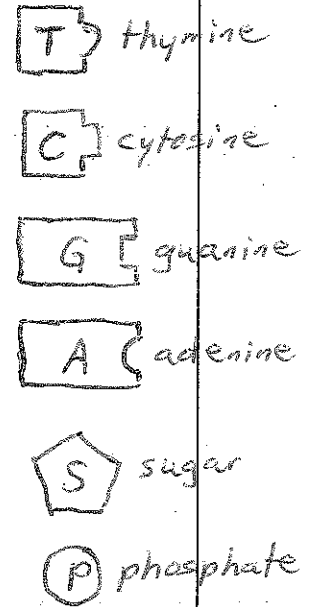 T thymine
C cytosine
G guanine
A adenine
S sugar
P phosphate